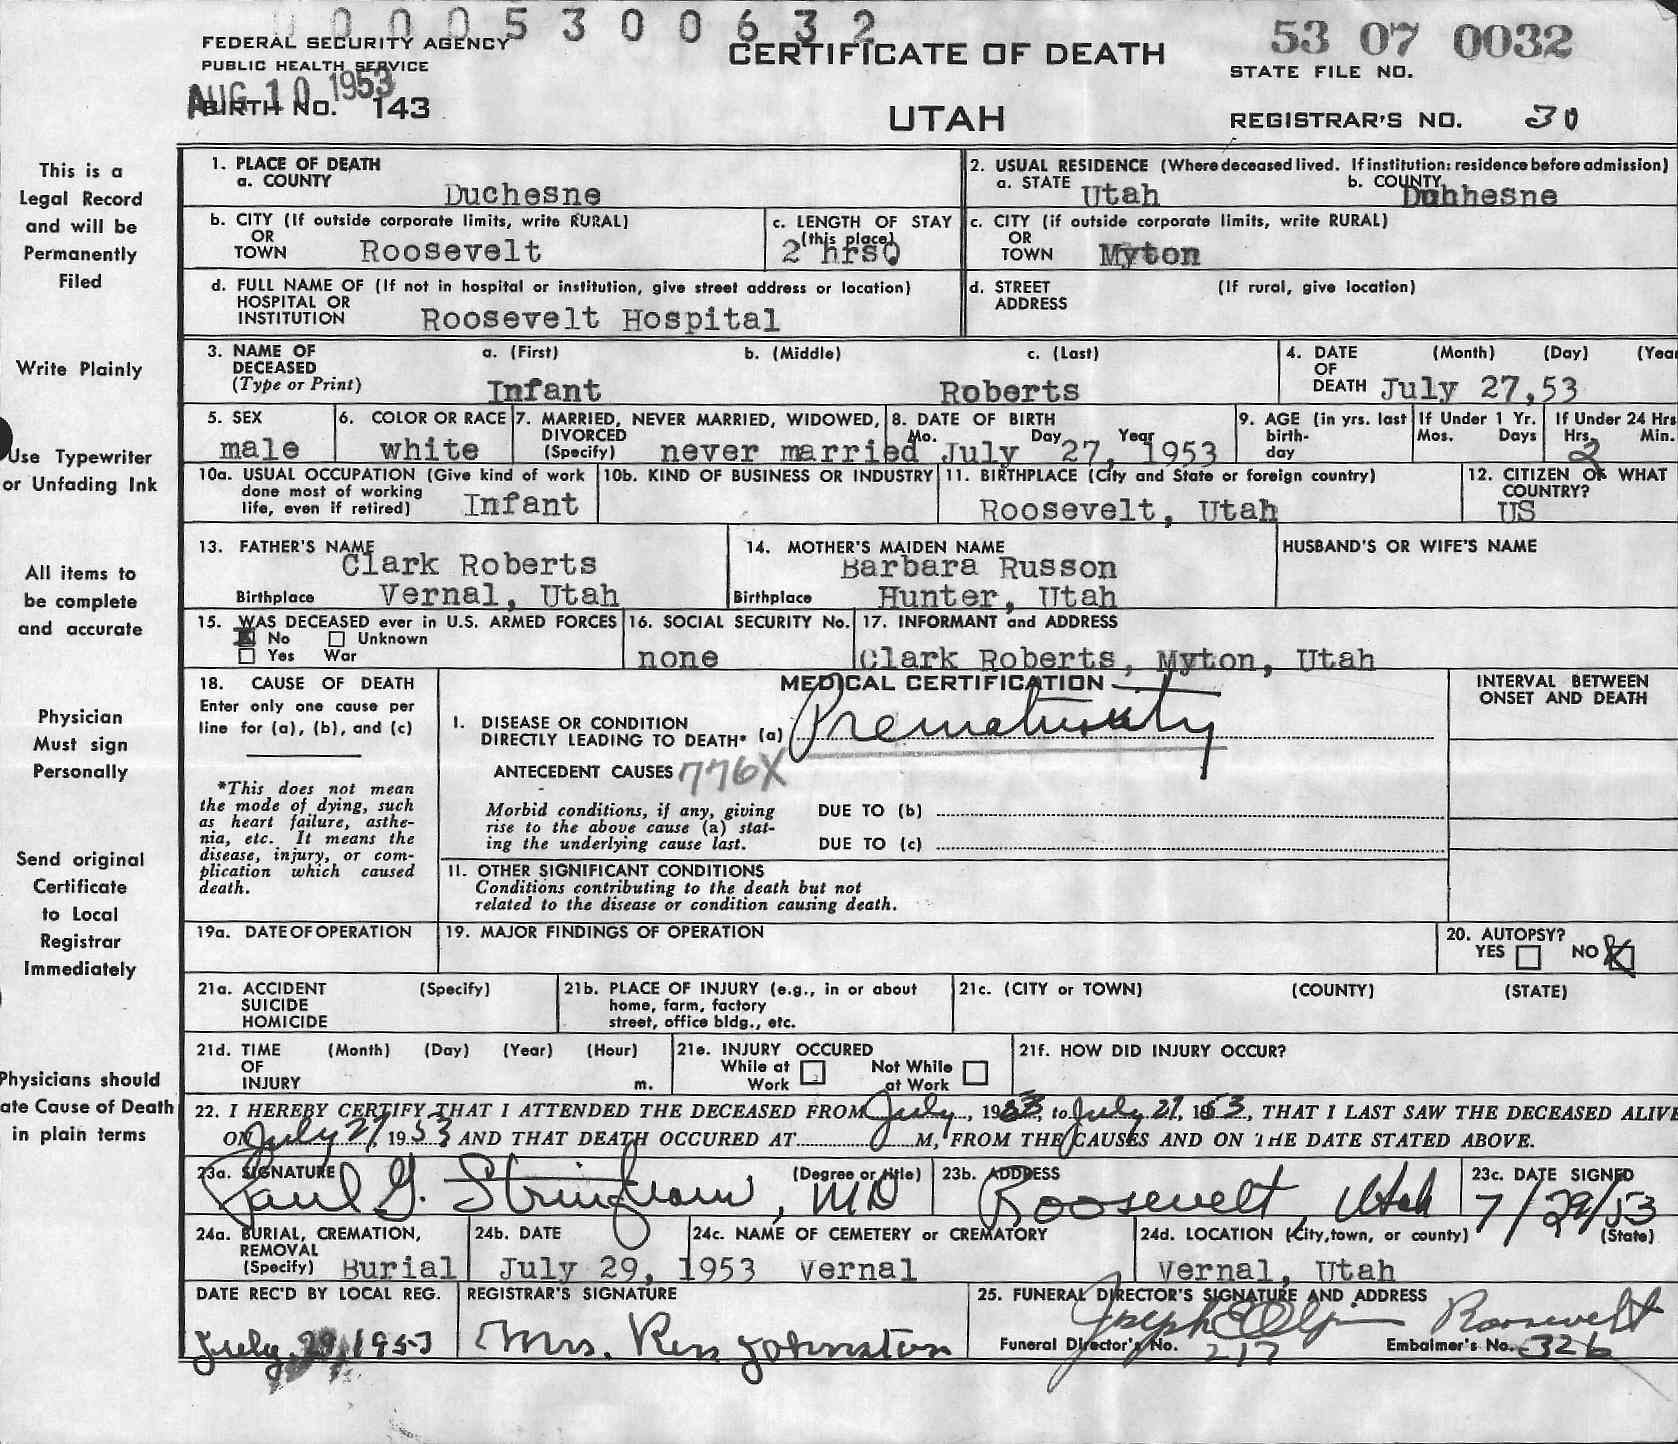 0 0 0 5 3 0 0 6 3 2
FEDERAL SECURITY AGENCY
PUBLIC HEALTH SERVICE
AUG 10 1953
BIRTH NO. 143
CERTIFICATE OF DEATH
UTAH
53 07 0032
STATE FILE NO.
REGISTRAR'S NO. 30
This is a
Legal Record
and will be
Permanently
Filed
Write Plainly
Use Typewriter
or Unfading Ink
All items to
be complete
and accurate
Physician
Must sign
Personally
Send original
Certificate
to Local
Registrar
Immediately
Physicians should
ate Cause of Death
in plain terms
1. PLACE OF DEATH
a. COUNTY Duchesne
2. USUAL RESIDENCE (Where deceased lived. If institution: residence before admission)
a. STATE Utah b. COUNTY Duhhesne
b. CITY (If outside corporate limits, write RURAL)
OR
TOWN Roosevelt
c. LENGTH OF STAY
(this place)
2 hrs
c. CITY (if outside corporate limits, write RURAL)
OR
TOWN Myton
d. FULL NAME OF (If not in hospital or institution, give street address or location)
HOSPITAL OR
INSTITUTION Roosevelt Hospital
d. STREET (If rural, give location)
ADDRESS
3. NAME OF a. (First) b. (Middle) c. (Last)
DECEASED
(Type or Print) Infant Roberts
4. DATE (Month) (Day) (Year
OF
DEATH July 27,53
5. SEX
male
6. COLOR OR RACE
white
7. MARRIED, NEVER MARRIED, WIDOWED,
DIVORCED
(Specify) never married
8. DATE OF BIRTH
Mo. Day Year
July 27, 1953
9. AGE (in yrs. last
birth-
day
If Under 1 Yr.
Mos. Days
If Under 24 Hrs
Hrs. Min.
2
10a. USUAL OCCUPATION (Give kind of work
done most of working
life, even if retired) Infant
10b. KIND OF BUSINESS OR INDUSTRY
11. BIRTHPLACE (City and State or foreign country)
Roosevelt, Utah
12. CITIZEN OF WHAT
COUNTRY?
US
13. FATHER'S NAME
Clark Roberts
Birthplace Vernal, Utah
14. MOTHER'S MAIDEN NAME
Barbara Russon
Birthplace Hunter, Utah
HUSBAND'S OR WIFE'S NAME
15. WAS DECEASED ever in U.S. ARMED FORCES
No Unknown
Yes War
16. SOCIAL SECURITY No.
none
17. INFORMANT and ADDRESS
Clark Roberts, Myton, Utah
18. CAUSE OF DEATH
Enter only one cause per
line for (a), (b), and (c)
*This does not mean
the mode of dying, such
as heart failure, asthe-
nia, etc. It means the
disease, injury, or com-
plication which caused
death.
MEDICAL CERTIFICATION
I. DISEASE OR CONDITION
DIRECTLY LEADING TO DEATH* (a) Prematurity
ANTECEDENT CAUSES 776X
Morbid conditions, if any, giving
rise to the above cause (a) stat-
ing the underlying cause last.
DUE TO (b)
DUE TO (c)
II. OTHER SIGNIFICANT CONDITIONS
Conditions contributing to the death but not
related to the disease or condition causing death.
INTERVAL BETWEEN
ONSET AND DEATH
19a. DATE OF OPERATION
19. MAJOR FINDINGS OF OPERATION
20. AUTOPSY?
YES NO X
21a. ACCIDENT (Specify)
SUICIDE
HOMICIDE
21b. PLACE OF INJURY (e.g., in or about
home, farm, factory
street, office bldg., etc.
21c. (CITY or TOWN) (COUNTY) (STATE)
21d. TIME (Month) (Day) (Year) (Hour)
OF
INJURY m.
21e. INJURY OCCURED
While at Not While
Work at Work
21f. HOW DID INJURY OCCUR?
22. I HEREBY CERTIFY THAT I ATTENDED THE DECEASED FROM July, 1953, to July 27, 1953, THAT I LAST SAW THE DECEASED ALIVE
ON July 27, 1953 AND THAT DEATH OCCURED AT M, FROM THE CAUSES AND ON THE DATE STATED ABOVE.
23a. SIGNATURE (Degree or title)
Paul G. Stringham, MD
23b. ADDRESS
Roosevelt, Utah
23c. DATE SIGNED
7/29/53
24a. BURIAL, CREMATION,
REMOVAL
(Specify) Burial
24b. DATE
July 29, 1953
24c. NAME OF CEMETERY or CREMATORY
Vernal
24d. LOCATION (City, town, or county) (State)
Vernal, Utah
DATE REC'D BY LOCAL REG.
July 29, 1953
REGISTRAR'S SIGNATURE
Mrs. Ken Johnston
25. FUNERAL DIRECTOR'S SIGNATURE AND ADDRESS
Joseph E Olpin Roosevelt
Funeral Director's No. 217 Embalmer's No. 326